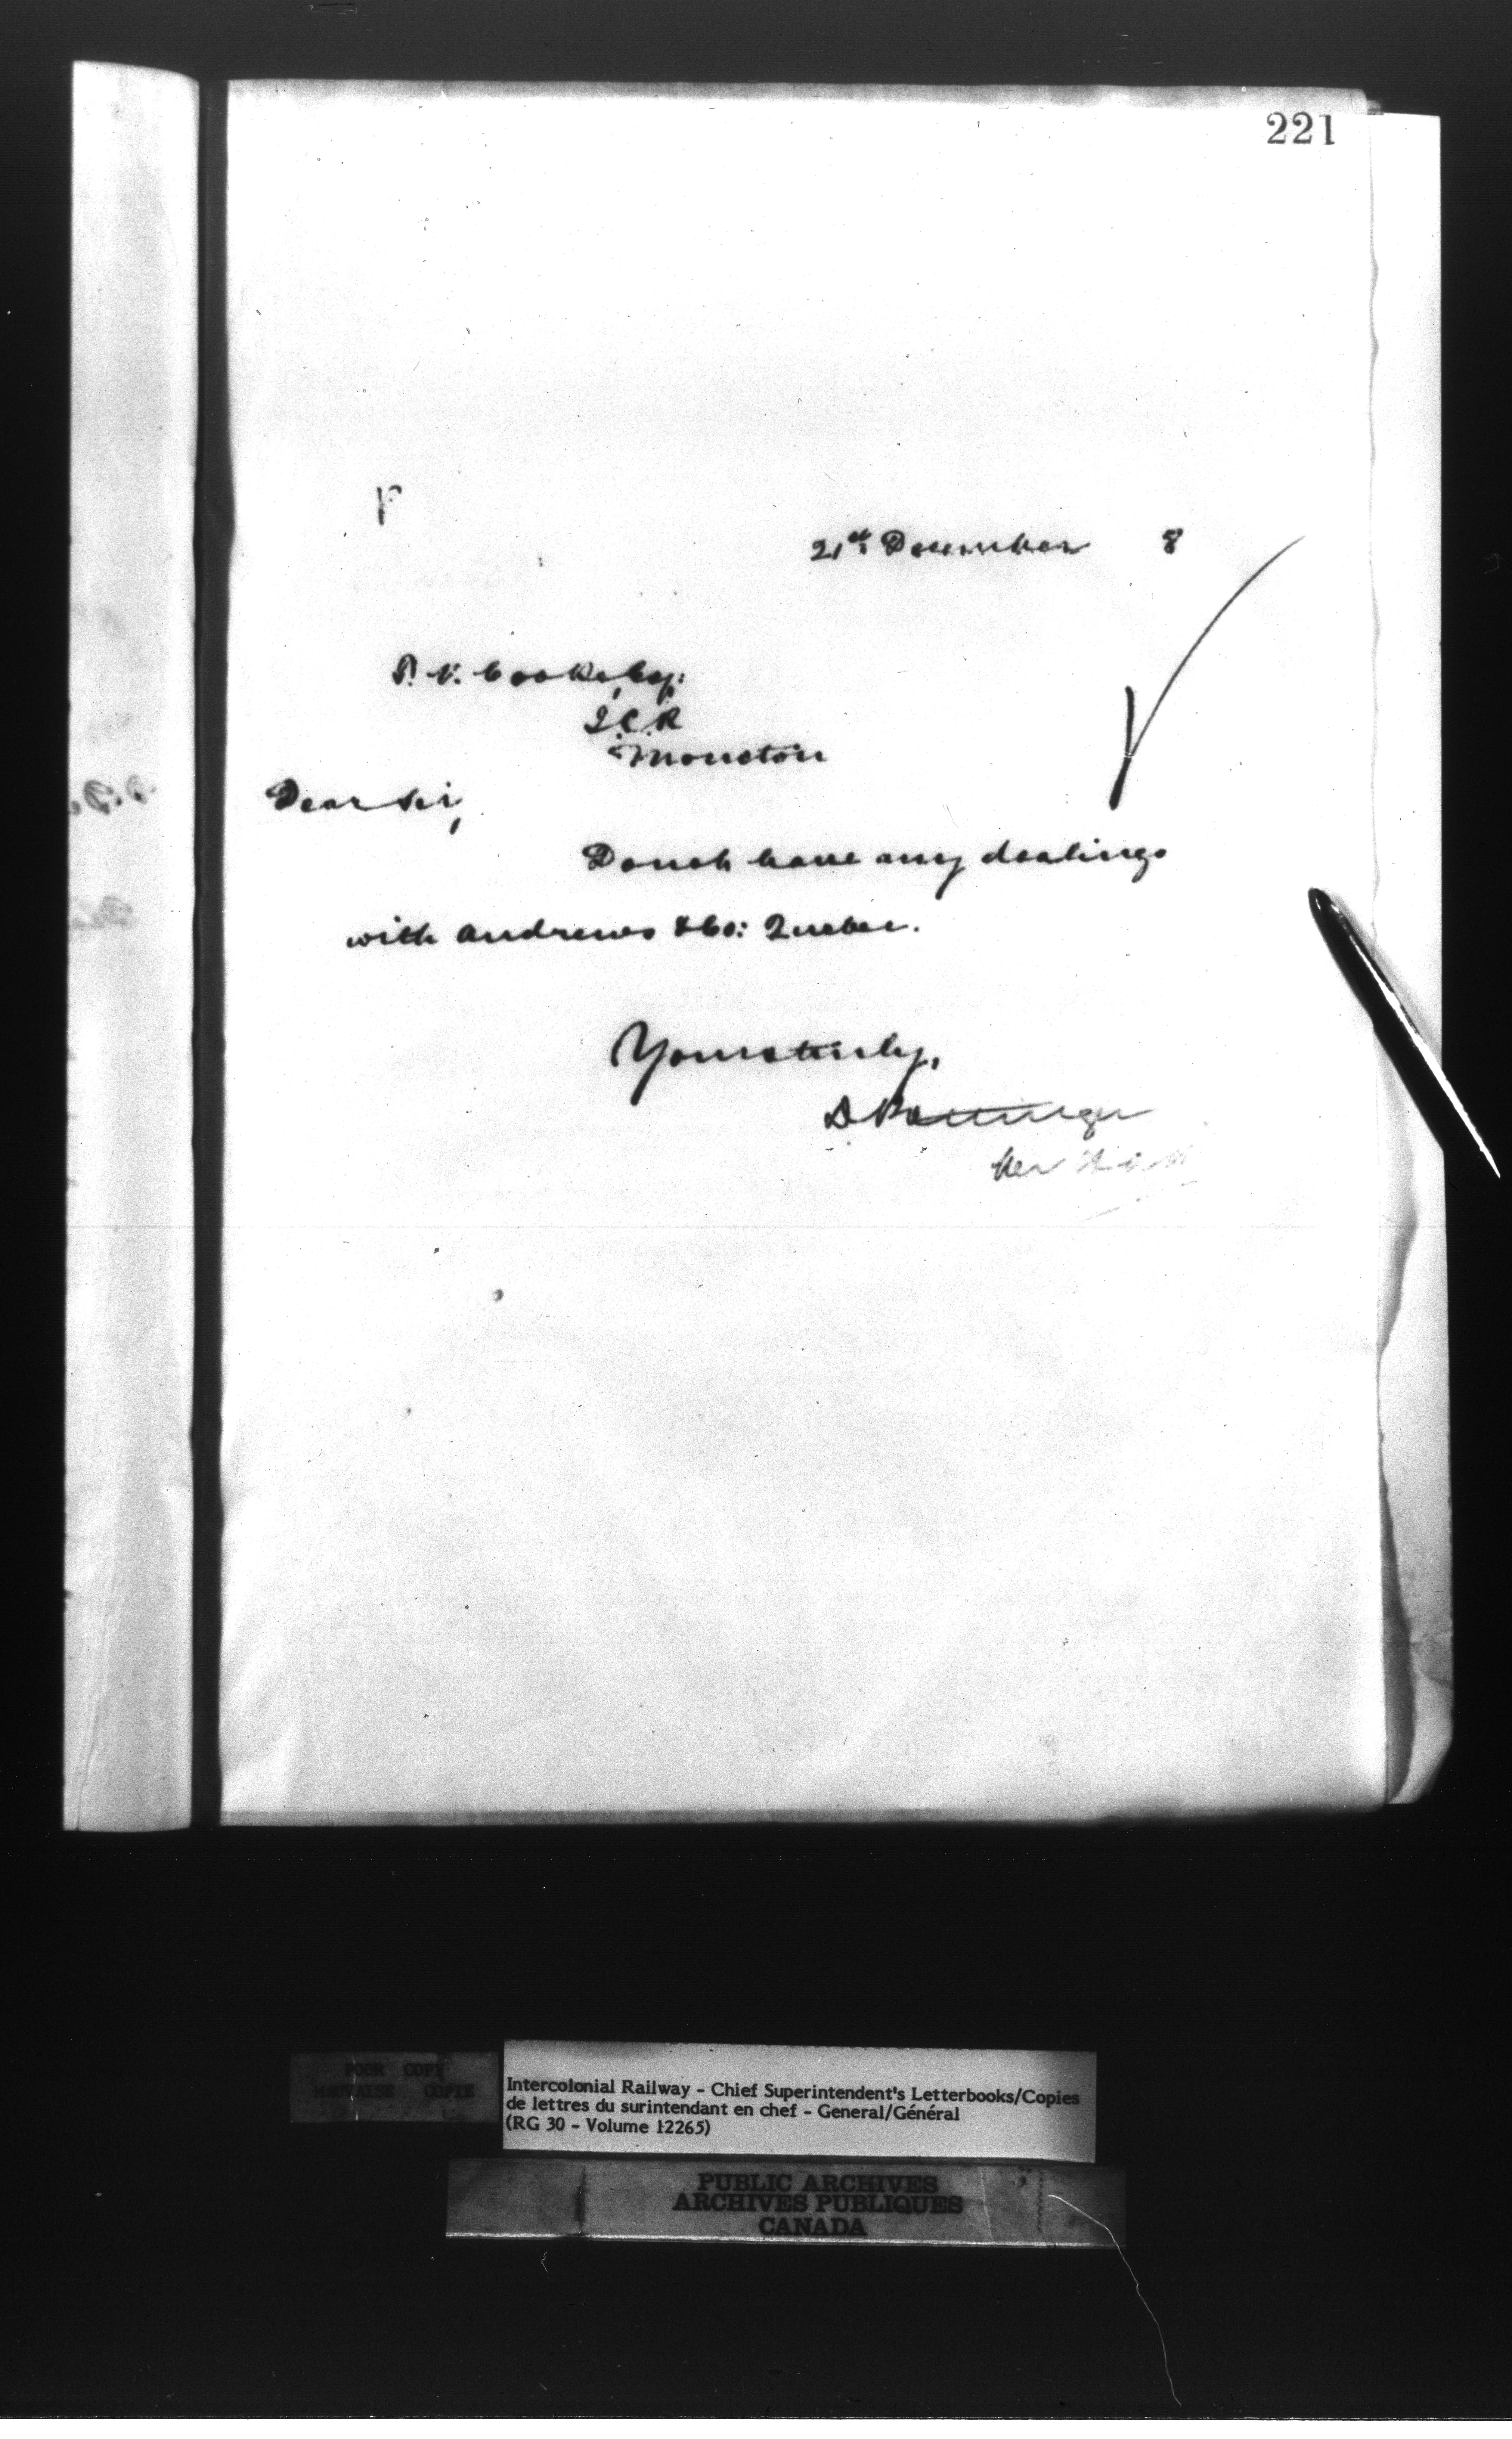 221
21st December 8
T. V. Cooke, Esq:
I.C.R
Moncton
Dear Sir,
Donot have any dealings
with Andrews & Co: Quebec.
Yours truly,
D Pottinger
POOR COPY
MAUVAISE COPIE
Intercolonial Railway - Chief Superintendent's Letterbooks/Copies
de lettres du surintendant en chef - General/Général
(RG 30 - Volume 12265)
PUBLIC ARCHIVES
ARCHIVES PUBLIQUES
CANADA